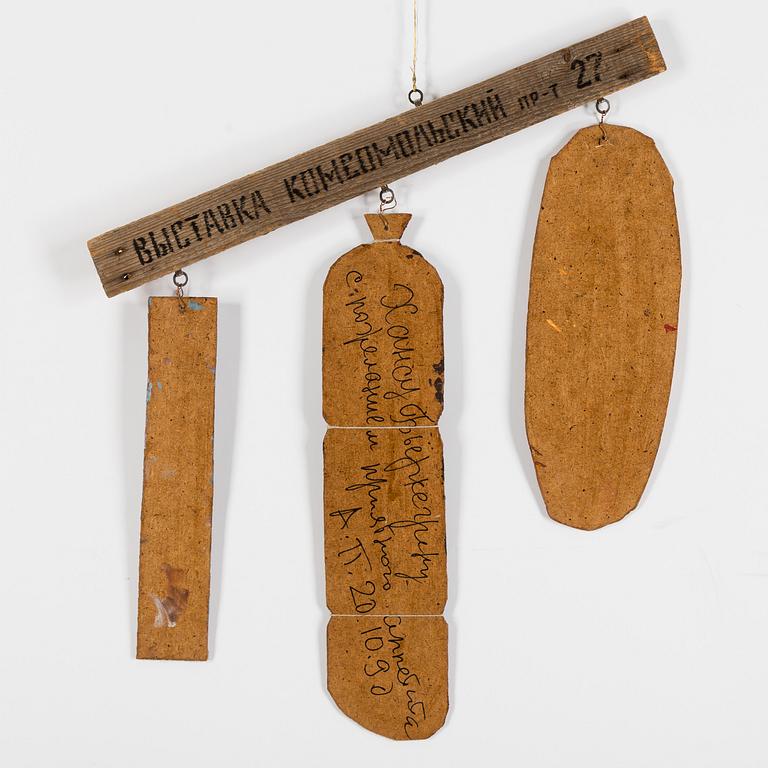 ВЫСТАВКА КОМСОМОЛЬСКИЙ ПР-Т 27
Хансу Бьеркегрину-
с пожеланием приятного аппетита
А.П. 20.10.92